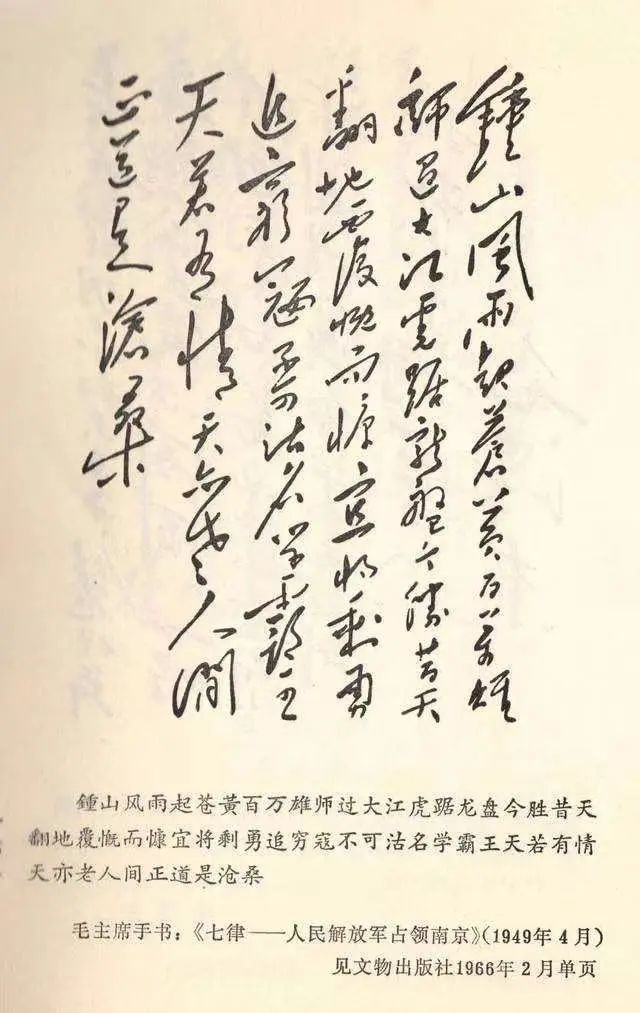 鍾山風雨起蒼黄百万雄
师过大江虎踞龙盘今胜昔天
翻地覆慨而慷宜将剩勇
追穷寇不可沽名学霸王
天若有情天亦老人间
正道是滄桑
鍾山风雨起苍黄百万雄师过大江虎踞龙盘今胜昔天
翻地覆慨而慷宜将剩勇追穷寇不可沽名学霸王天若有情
天亦老人间正道是沧桑
毛主席手书：《七律——人民解放军占领南京》(1949年4月)
见文物出版社1966年2月单页